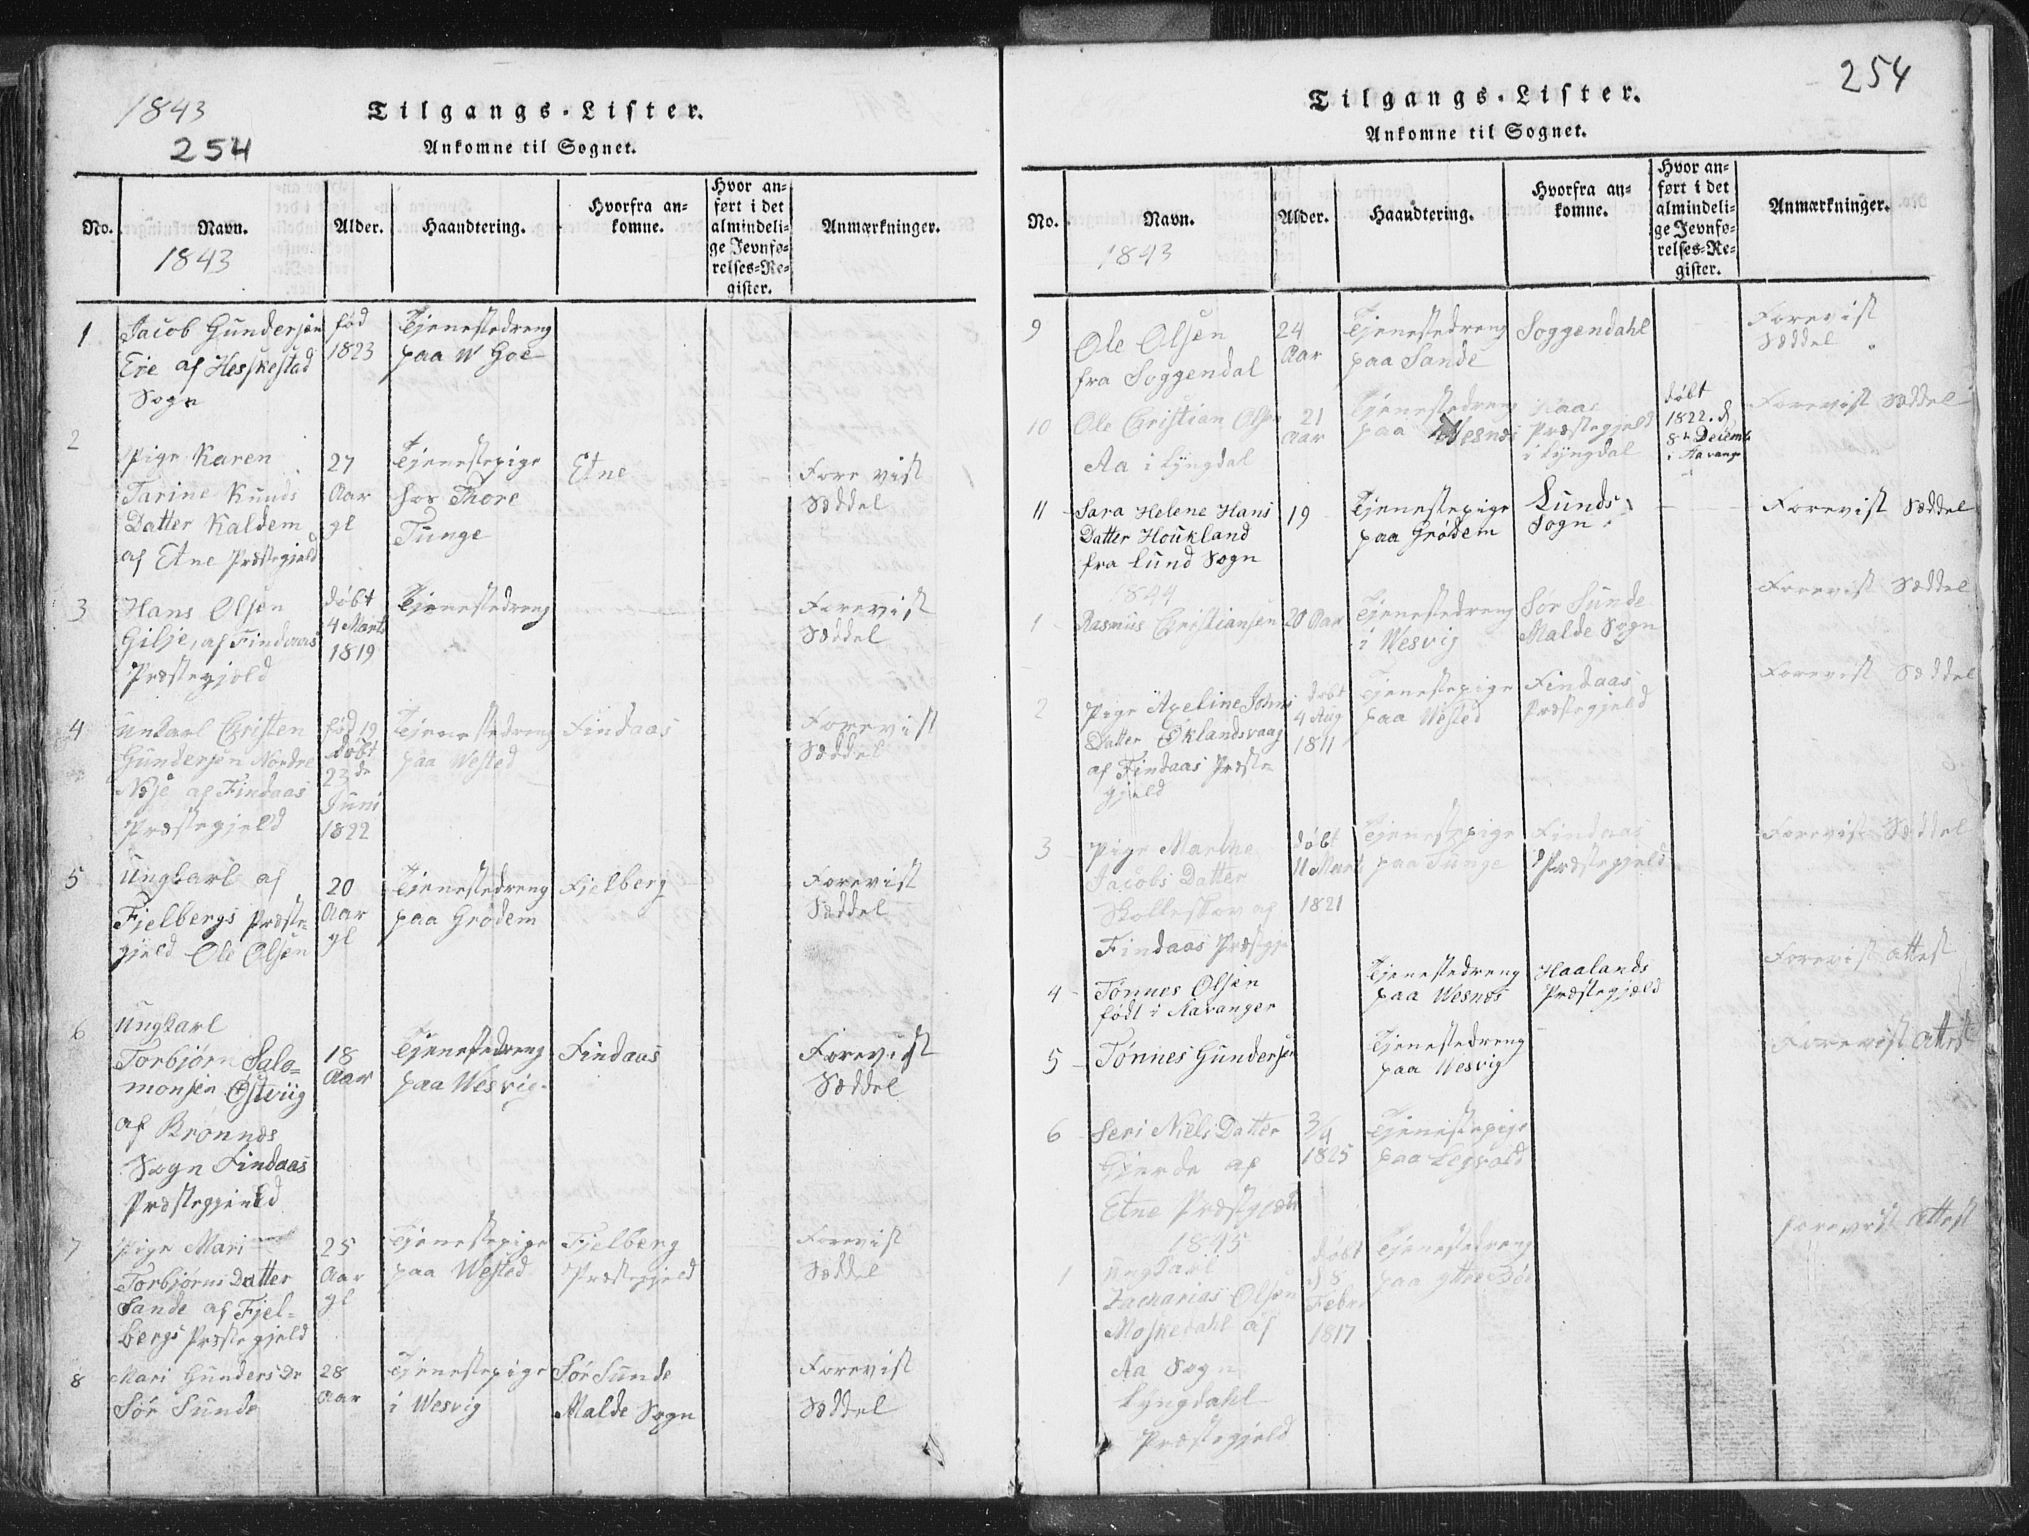 1843
254
Tilgangs-Lister.
Ankomne til Sognet.
No.
Navn.
1843
Alder.
Haandtering.
Hvorfra an-
komne.
Hvor an-
ført i det
almindeli-
ge Jevnfø-
relses-Re-
gister.
Anmærkninger.
1
Jacob Gundersen
Eie af Heskestad
Sogn
fød
1823
Tjenestedreng
paa W Goe
2
Pige Karen
Tarine Knuds
Datter Kaldem
af Etne Præstegjeld
27
Aar
gl
Tjenestepige
hos Thore
Tunge
Etne
Forevist
Sæddel
3
Hans Olsen
Gilje, af Findaas
Præstegjeld
døbt
4 Marts
1819
Tjenestedreng
Forevist
Sæddel
4
Unkarl Christen
Gundersen Nordre
af Findaas
Præstegjeld
fød 19
døbt
23de
Juni
1822
Tjenestedreng
paa Wested
Findaas
Forevist
Sæddel
5
Ungkarl af
Fjelbergs Præste-
gjeld Ole Olsen
20
Aar
gl
Tjenestedreng
paa Grødem
Fjelberg
Forevist
Sæddel
6
Ungkarl
Torbjørn Salo-
monsen Østviig
af Brønnes
Sogn Findaas
Præstegjeld
18
Aar
Tjenestedreng
paa Wesvig
Findaas
Forevist
Sæddel
7
Pige Mari
Torbjørns Datter
Sande af Fjel-
bergs Præstegjeld
25
Aar
gl
Tjenestepige
paa Wested
Fjelberg
Præstegjeld
Forevist
Sæddel
8
Mari Gunders Dr
Sør Sunde
28
Aar
Tjenestepige
i Wesvig
Sør Sunde
Malde Sogn
Forevist
Sæddel
254
Tilgangs-Lister.
Ankomne til Sognet.
No.
Navn.
1843
Alder.
Haandtering.
Hvorfra an-
komne.
Hvor an-
ført i det
almindeli-
ge Jevnfø-
relses-Re-
gister.
Anmærkninger.
9
Ole Olsen
fra Soggendal
24
Aar
Tjenestedreng
paa Sande
Soggendahl
Forevist
Sæddel
10
Ole Christian Olsen
Aa i Lyngdal
21
Aar
Tjenestedreng
paa Wesnes
Præstegjeld
i Lyngdal
døbt
1822. d.
8de Decemb
Forevist Sæddel
11
Sara Helene Hans
Datter Houkland
fra Lund Sogn
19
Tjenestepige
paa Grødem
Lunds
Sogn
Forevist Sæddel
1844
1
Rasmus Christiansen
20 Aar
Tjenestedreng
i Wesvig
Sør Sunde
Malde Sogn
Forevist Sæddel
2
Pige Axeline Johns
Datter Øklandsvaag
af Findaas Præste-
gjeld
døbt
4 Aug
1811
Tjenestepige
paa Wested
Findaas
Præstegjeld
Forevist Sæddel
3
Pige Marthe
Jacobs Datter
af
Findaas Præstegje
døbt
11 Marts
1821
Tjenestepige
paa Tunge
Findaas
Præstegjeld
Forevist Sæddel
4
Tønnes Olsen
født i Stavanger
Tjenestedreng
paa Wesnes
Haalands
Præstegjeld
Forevist attest
5
Tønnes Gundersen
Tjenestedreng
paa Wesvig
Forevist attest
6
Seri Niels Datter
Gjerde af
Etne Præstgjeld
3/4
1825
Tjenestepige
paa
1845
1
Ungkarl
Zacharias Olsen
Moskedahl af
Aa Sogn
Lyngdahl
Præstegjeld
døbt
Febr
1817
Tjenestedreng
paa Ytre Bø
forevist attest